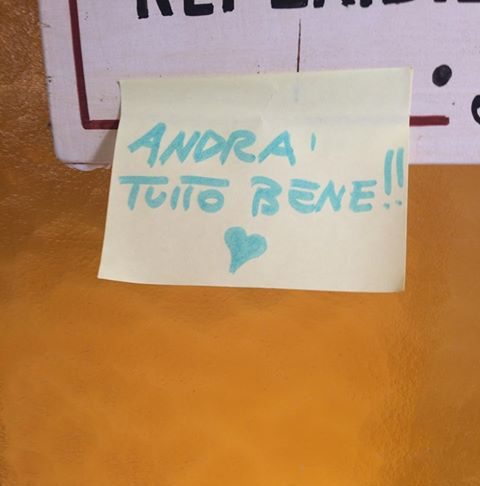 ANDRA'
TUTTO BENE!!